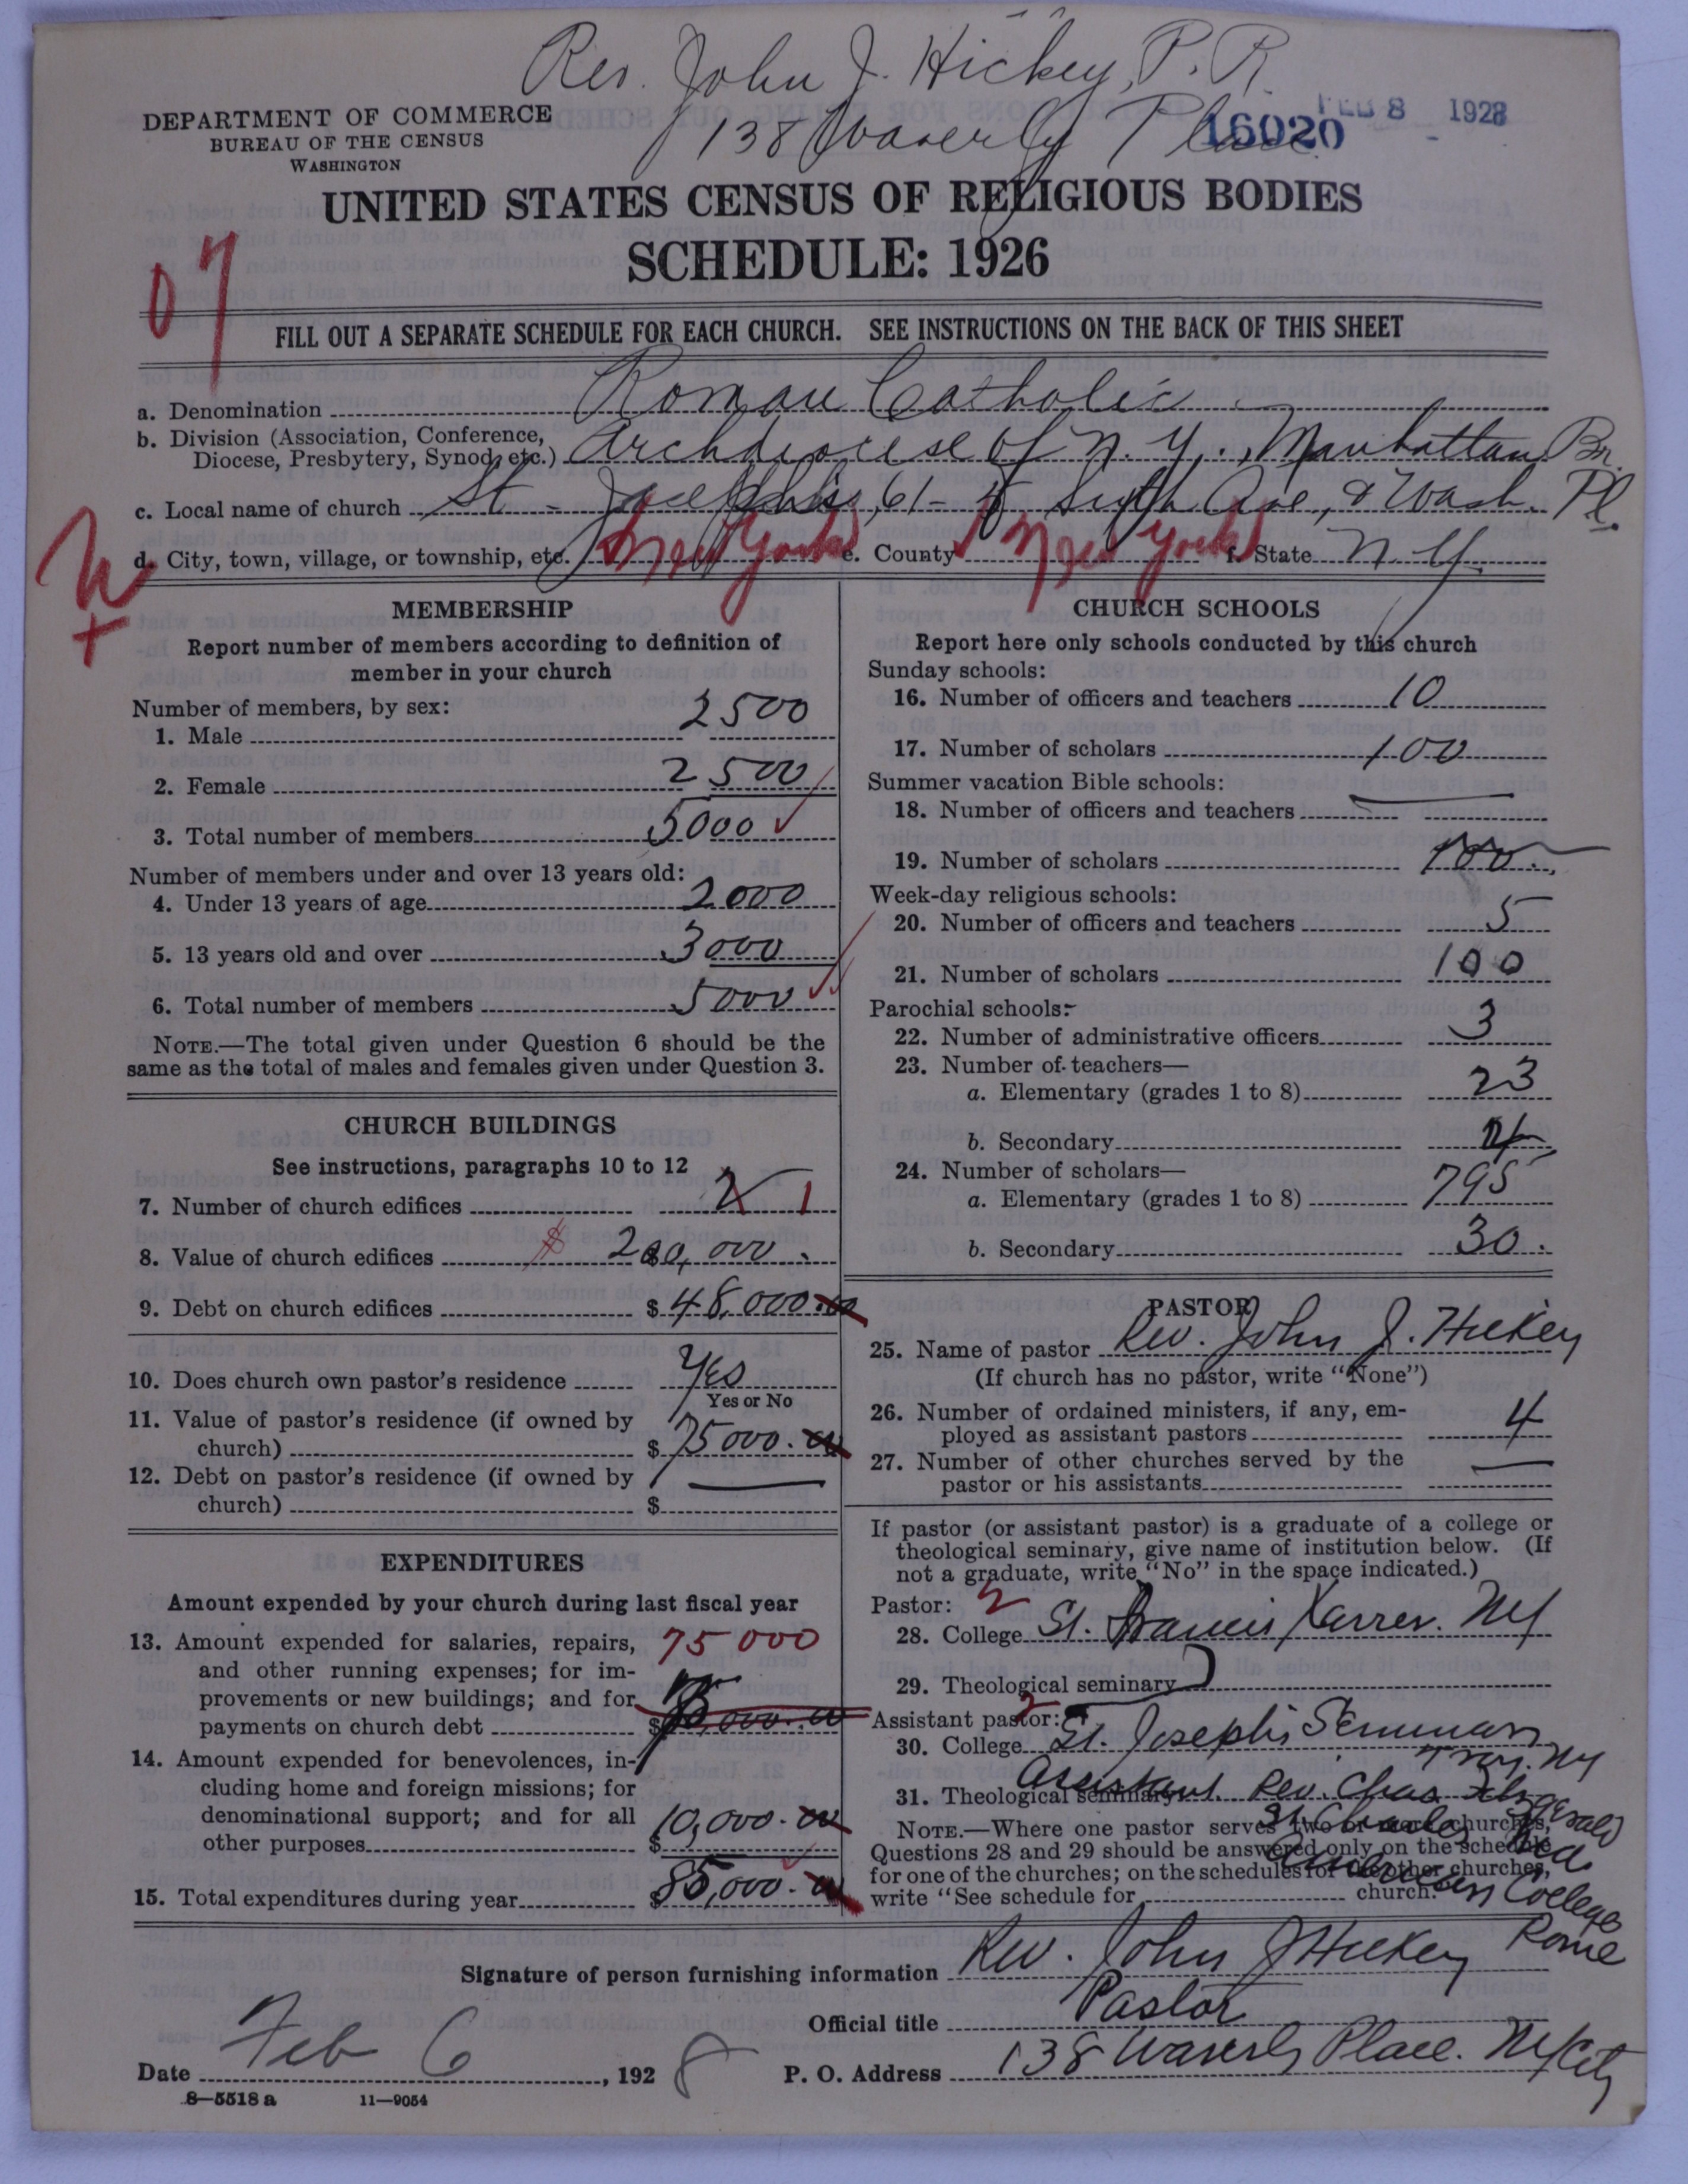 Rev. John J. Hickey, P. R.
138 Waverly Place
FEB 8 1928
16020
DEPARTMENT OF COMMERCE
BUREAU OF THE CENSUS
WASHINGTON
UNITED STATES CENSUS OF RELIGIOUS BODIES
SCHEDULE: 1926
07
FILL OUT A SEPARATE SCHEDULE FOR EACH CHURCH. SEE INSTRUCTIONS ON THE BACK OF THIS SHEET
a. Denomination Roman Catholic
b. Division (Association, Conference,
Diocese, Presbytery, Synod, etc.) Archdiocese of N. Y., Manhattan Br.
c. Local name of church St Joseph's, 61- Sixth Ave, & Wash. Pl.
d. City, town, village, or township, etc. New York e. County New York f. State N. Y.
MEMBERSHIP
Report number of members according to definition of
member in your church
Number of members, by sex:
1. Male 2500
2. Female 2500
3. Total number of members 5000
Number of members under and over 13 years old:
4. Under 13 years of age 2000
5. 13 years old and over 3000
6. Total number of members 5000
NOTE.—The total given under Question 6 should be the
same as the total of males and females given under Question 3.
CHURCH BUILDINGS
See instructions, paragraphs 10 to 12
7. Number of church edifices 2 1
8. Value of church edifices $ 200,000.
9. Debt on church edifices $ 48,000.00
10. Does church own pastor's residence Yes
Yes or No
11. Value of pastor's residence (if owned by
church) $ 75000.00
12. Debt on pastor's residence (if owned by
church) $ —
EXPENDITURES
Amount expended by your church during last fiscal year
13. Amount expended for salaries, repairs, 75000
and other running expenses; for im-
provements or new buildings; and for
payments on church debt $
14. Amount expended for benevolences, in-
cluding home and foreign missions; for
denominational support; and for all
other purposes $ 10,000.00
15. Total expenditures during year $ 85,000.00
CHURCH SCHOOLS
Report here only schools conducted by this church
Sunday schools:
16. Number of officers and teachers 10
17. Number of scholars 100
Summer vacation Bible schools:
18. Number of officers and teachers —
19. Number of scholars 100
Week-day religious schools:
20. Number of officers and teachers 5
21. Number of scholars 100
Parochial schools:
22. Number of administrative officers 3
23. Number of teachers—
a. Elementary (grades 1 to 8) 23
b. Secondary
24. Number of scholars—
a. Elementary (grades 1 to 8) 795
b. Secondary 30.
PASTOR
25. Name of pastor Rev. John J. Hickey
(If church has no pastor, write "None")
26. Number of ordained ministers, if any, em-
ployed as assistant pastors 4
27. Number of other churches served by the
pastor or his assistants —
If pastor (or assistant pastor) is a graduate of a college or
theological seminary, give name of institution below. (If
not a graduate, write "No" in the space indicated.)
Pastor: 2
28. College St. Francis Xavier. NY
29. Theological seminary
Assistant pastor: 2
30. College St. Joseph's Seminary
Troy. NY
31. Theological seminary Assistant Rev. Chas Fitzgerald
St Charles Md.
American College
Rome
NOTE.—Where one pastor serves two or more churches,
Questions 28 and 29 should be answered only on the schedule
for one of the churches; on the schedules for the other churches,
write "See schedule for church."
Signature of person furnishing information Rev. John J Hickey
Official title Pastor
Date Feb 6, 1928 P. O. Address 138 Waverly Place. NY City
8—5518 a 11—9054